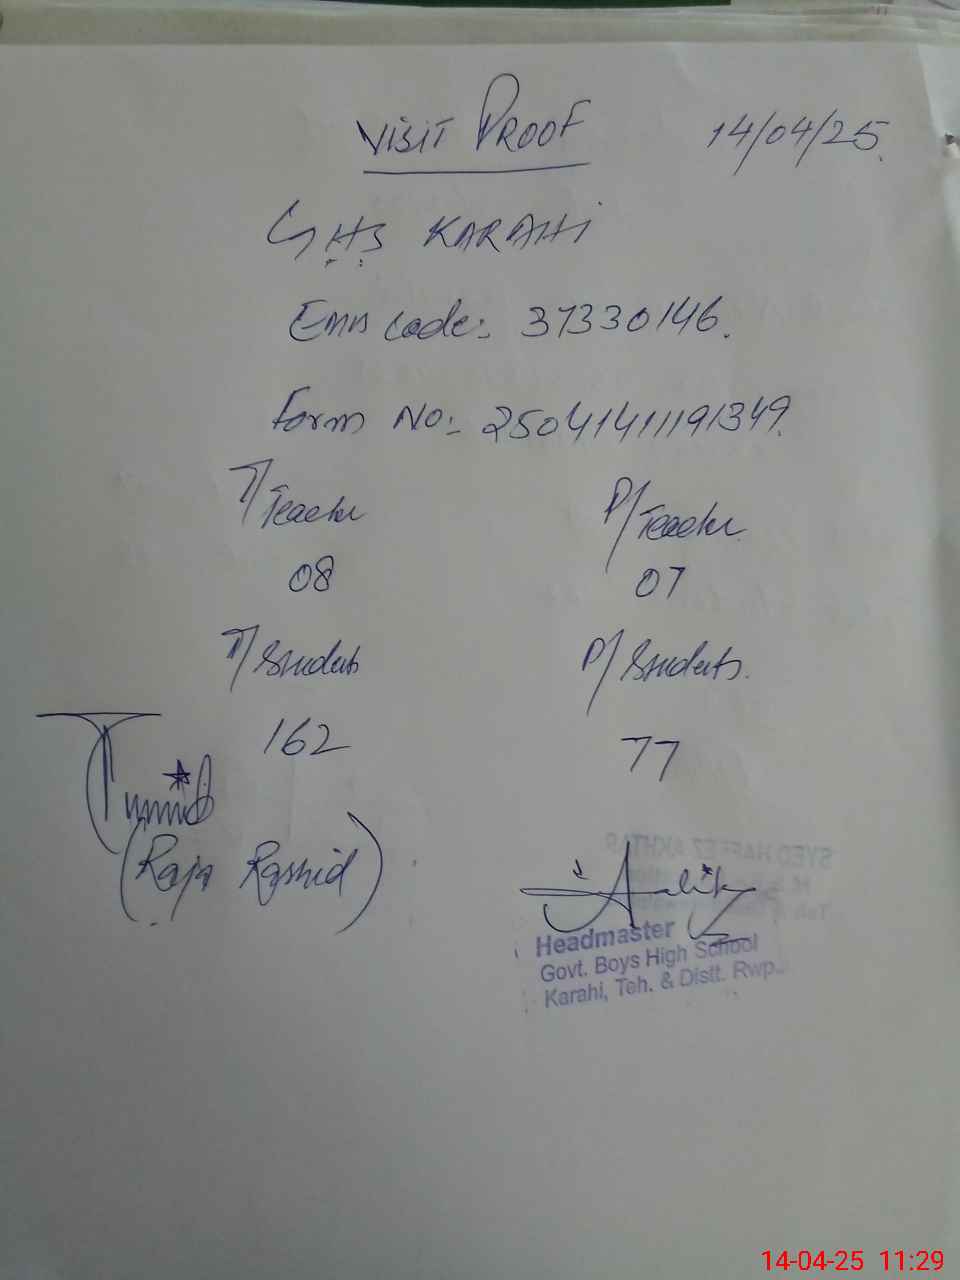 VISIT PROOF 14/04/25.
GHS KARAHI
Emis code:- 37330146.
Form No:- 25041411191349.
T/Teacher P/Teacher
08 07
T/Students P/Students.
162 77
(Raja Rashid)
SYED HAFEEZ AKHTAR
Headmaster
Govt. Boys High School
Karahi, Teh. & Distt. Rwp.
14-04-25 11:29